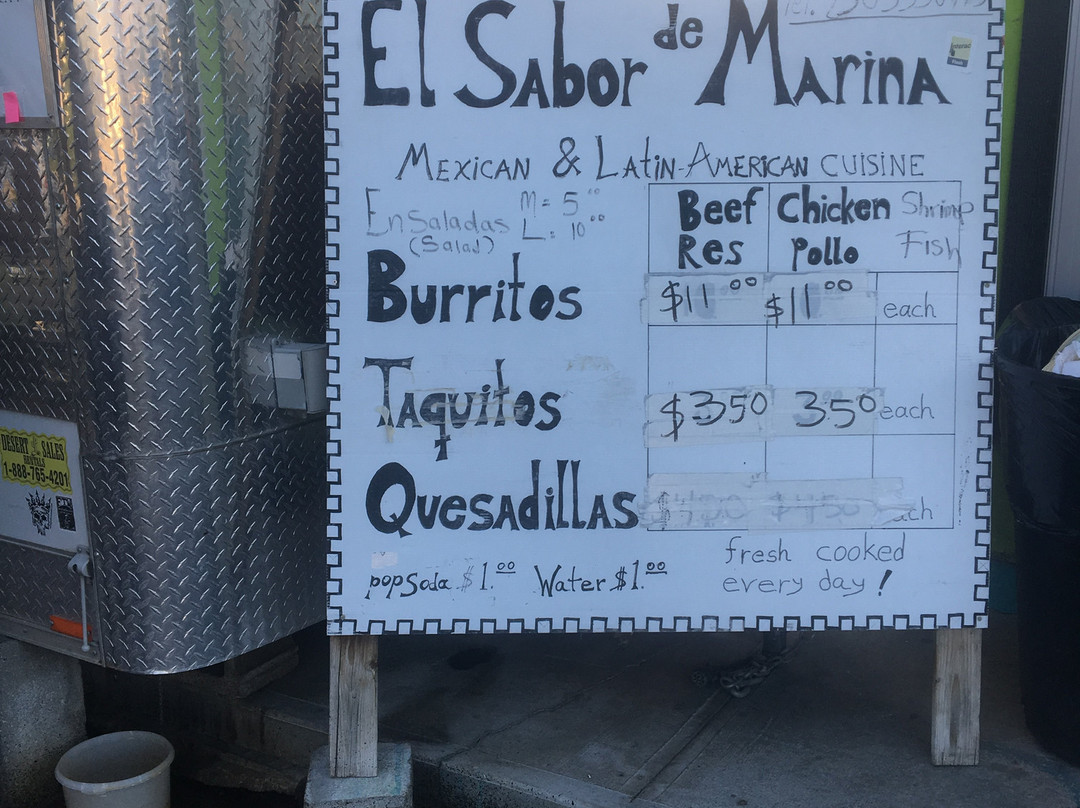 El Sabor de Marina
Mexican & Latin-American cuisine
Ensaladas M = 5.00
(Salad) L = 10.00
Beef Chicken Shrimp
Res Pollo Fish
Burritos $11 00 $11 00 each
Taquitos $3 50 3 50 each
Quesadillas $4 50 each
fresh cooked
every day!
pop Soda $1.00 Water $1.00
DESERT SALES
RENTALS
1-888-765-4201